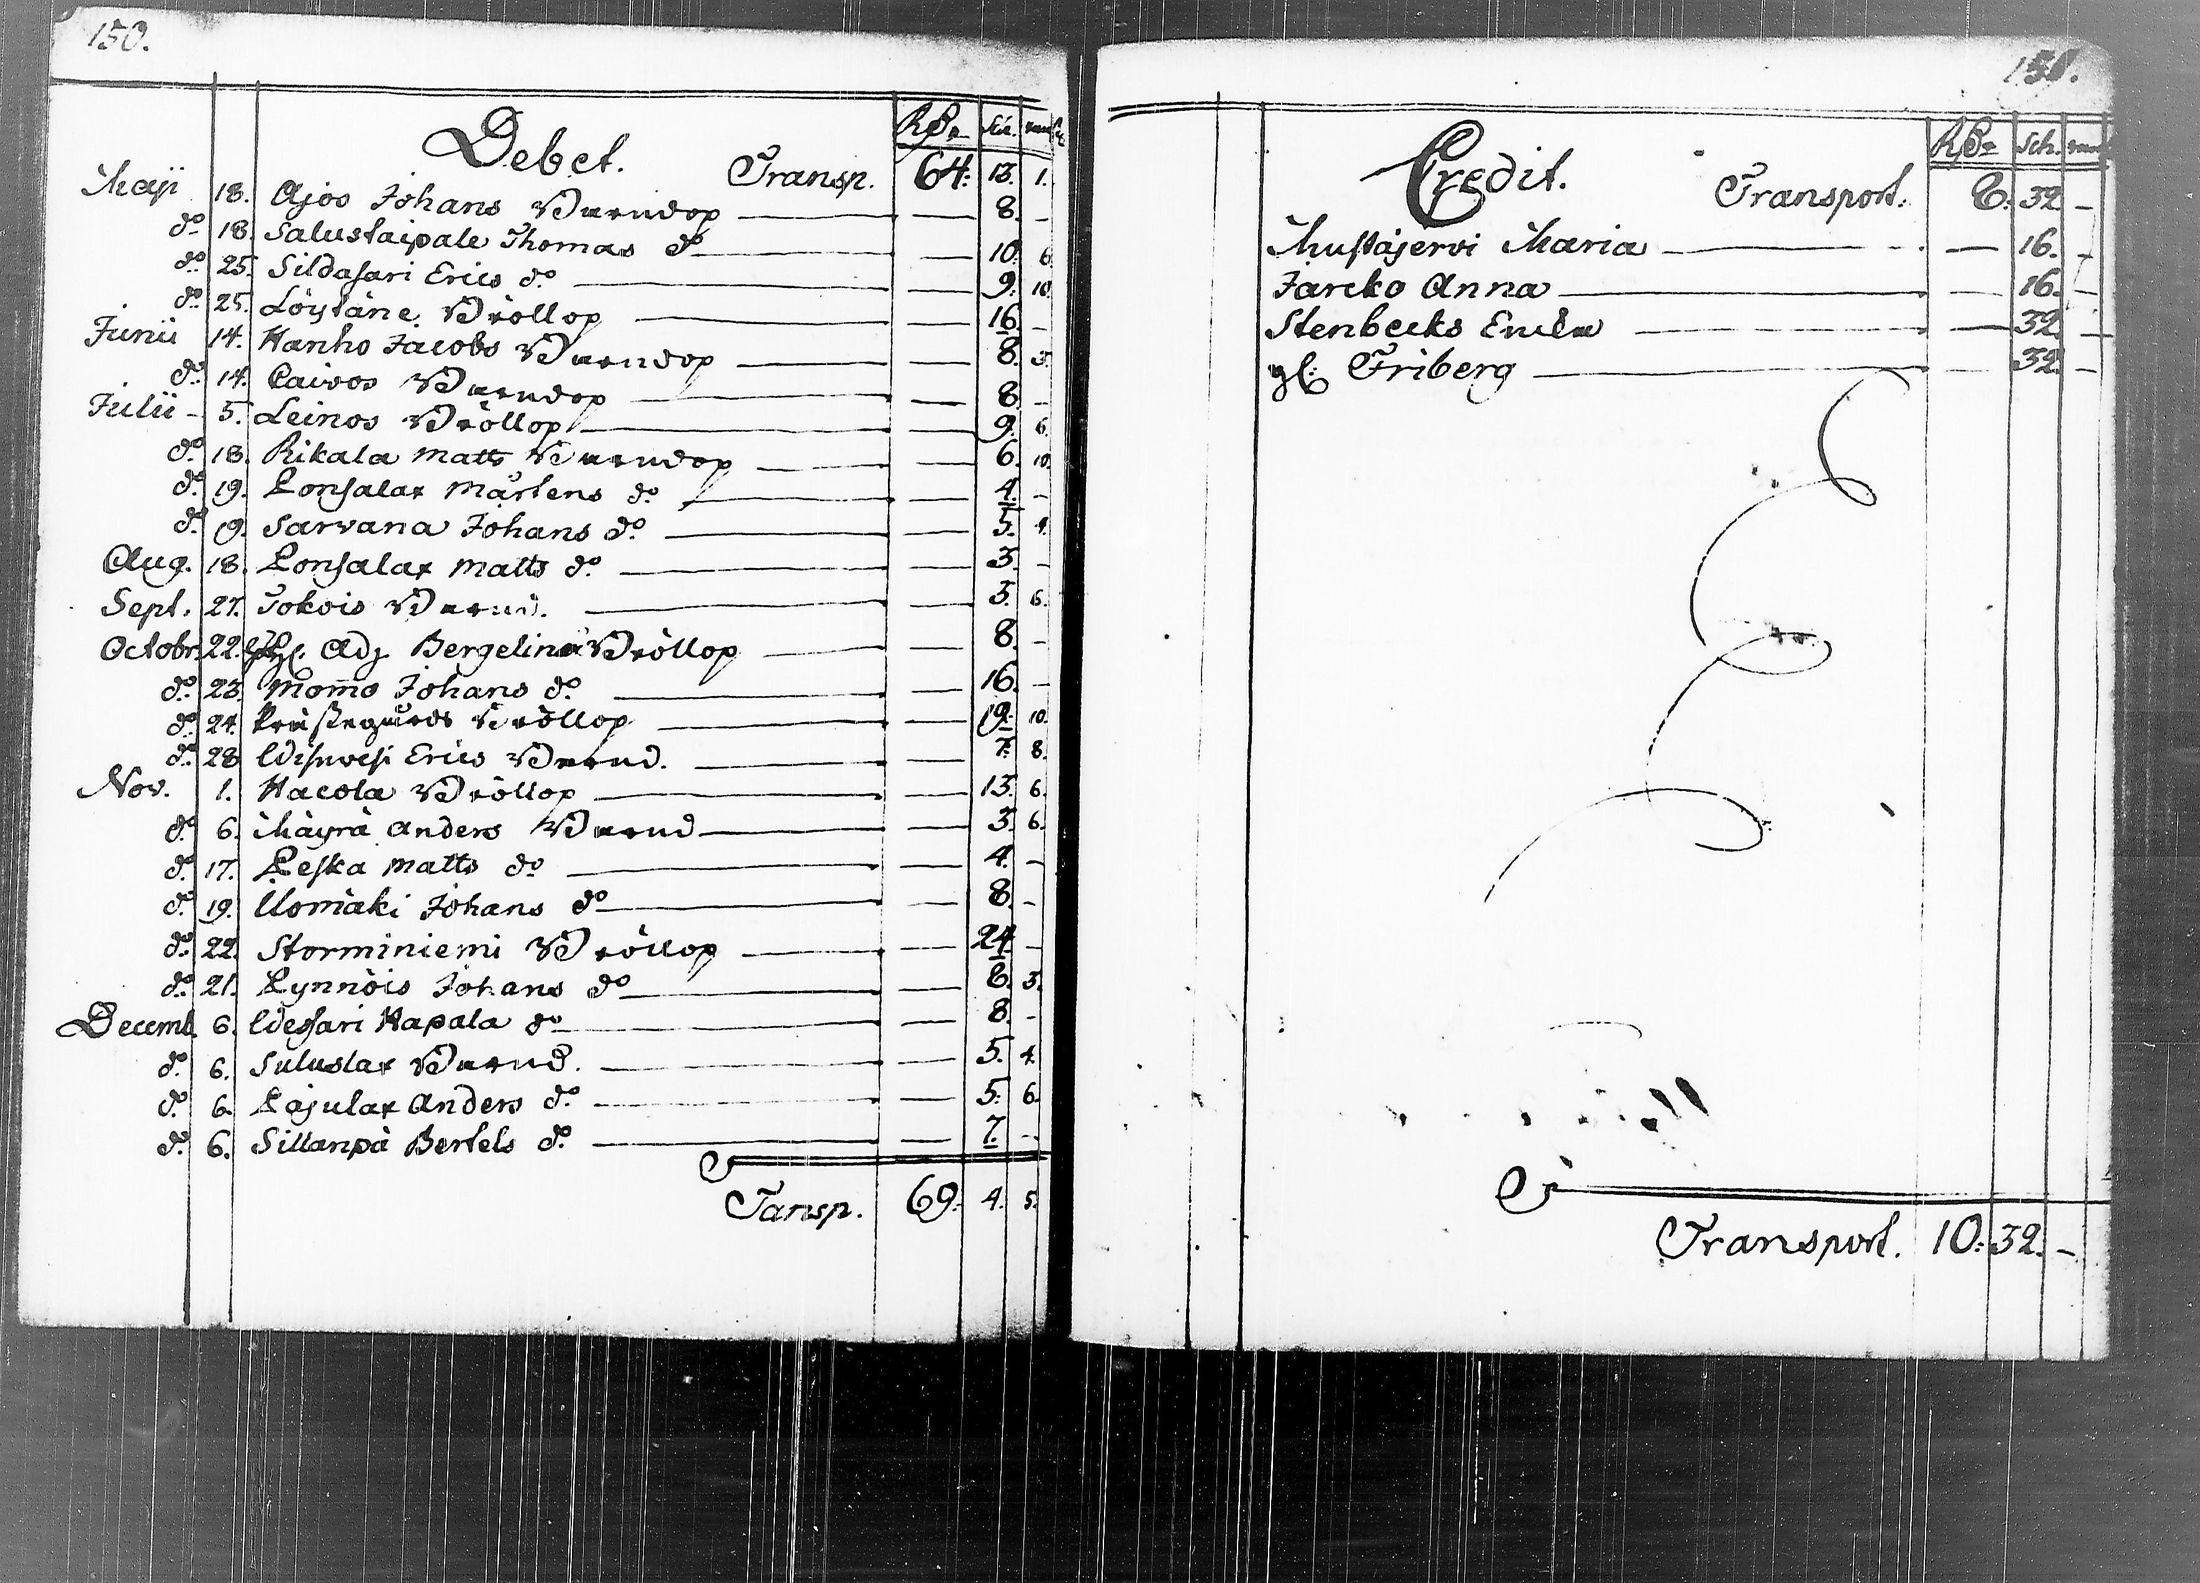 150.
Debet.
Rd. Sk. run
Transp. 64. 13. 1.
Maji 18. Ajos Johans Barndop — — 8. —
do 18. Salustaipale Thomas do — — 10. 6.
do 25. Sildasari Erics do — — 9. 10.
do 25. Löytäne Bröllop — — 16. —
Junii 14. Hanho Jacobs Barndop — — 8. 3.
do 14. Caivos Barndop — — 8. —
Julii 5. Leinos Bröllop — — 9. 6.
do 18. Rikala Matts Barndop — — 6. 10.
do 19. Konsalax Mårtens do — — 4. —
do 19. Sarvana Johans do — — 5. 4.
Aug. 18. Konsalax Matts do — — 3. —
Sept. 27. Jokois Barnd. — — 3. 6.
Octobr. 22. Adj. Bergelins Bröllop — — 8. —
do 23. Mom̄o Johans do — — 16. —
do 24. Bröllop — — 19. 10.
do 28. Erics Barnd. — — 7. 8.
Nov. 1. Hacola Bröllop — — 13. 6.
do 6. Mäyrä Anders Barnd — — 3. 6.
do 17. Keska Matts do — — 4. —
do 19. Uomäki Johans do — — 8. —
do 22. Storminiemi Bröllop — — 24. —
do 21. Kynnöis Johans do — — 6. 3.
Decemb. 6. Hapala do — — 8. —
do 6. Suluslax Barnd. — — 5. 4.
do 6. Kajulax Anders do — — 5. 6.
do 6. Sillanpä Bertels do — — 7. —
Tansp. 69. 4. 5.
151.
Credit.
Rd. Sch. run
Transport. 8. 32. —
Mustajervi Maria — — 16. —
Jarcko Anna — — 16. —
Stenbecks Enckia — — 32. —
gl. Friberg — — 32. —
Transport. 10. 32. —